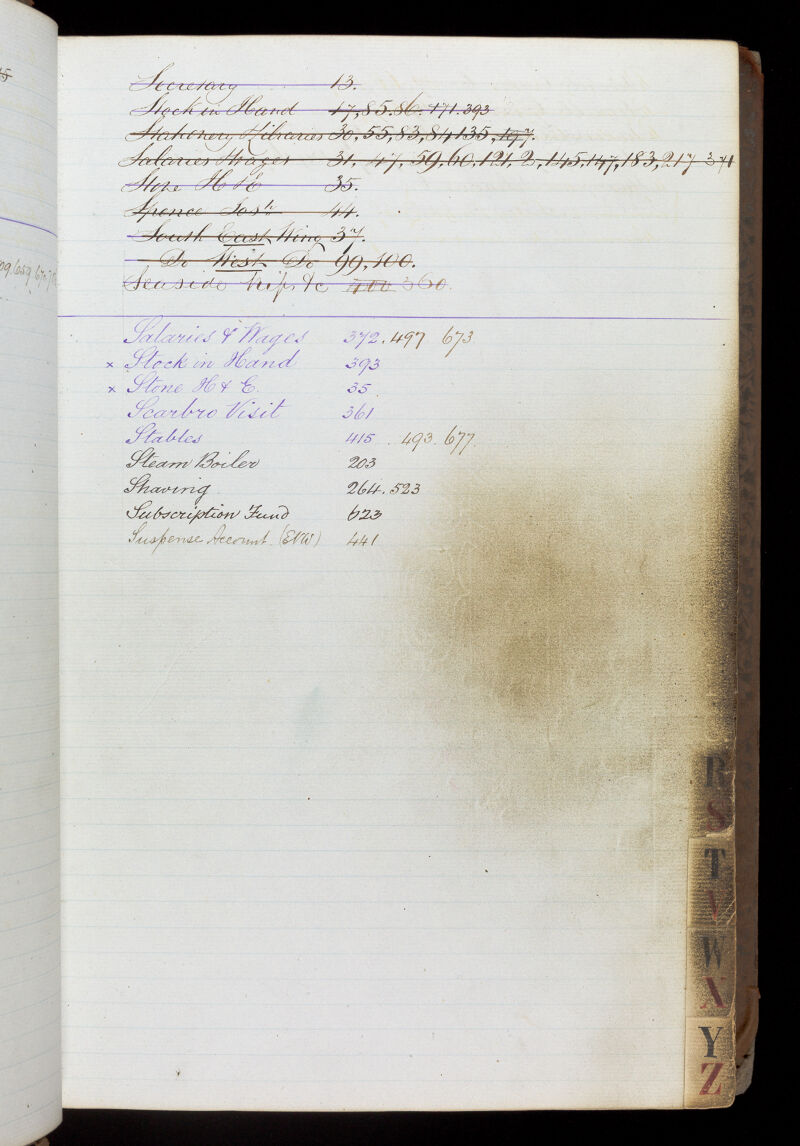 15
Secretary 13.
Stock in Hand 17, 85. 86. 171. 393
Stationery Libraries 30, 55, 83, 84 135, 197.
Salaries Wages 31, 47, 59, 60, 121, 2, 145, 147, 183, 217 371
Stone H & E 35.
Spence Josh 44.
South East Wing 37.
Do West Do 99, 100.
Seaside trip &c 400 360.
09. 659. 670
Salaries & Wages 372. 497 673
x Stock in Hand 393
x Stone H & E. 35
Scarbro Visit 361
Stables 415 . 493. 677.
Steam Boiler 203
Shaving 264. 523
Subscription Fund 623
Suspense Account (ENW) 441
R
S
T
V
W
X
Y
Z